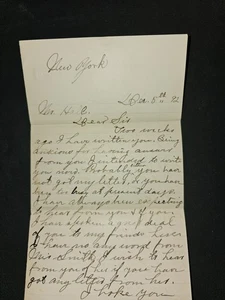 New York
Dec 5th 22
Mr. H. C.
Dear Sir
Two weeks
ago I have written you. Being
anxious for having answer
from you I intended to write
you now. Probably you have
not got my letter. Or you have
been busy at present days.
I have always been expecting
to hear from you & if you
have spoken a good deal
of you to my friends here
I have no any word from
Mrs. Smith. I wish to hear
from you if you have
got any letter from her.
I hope you